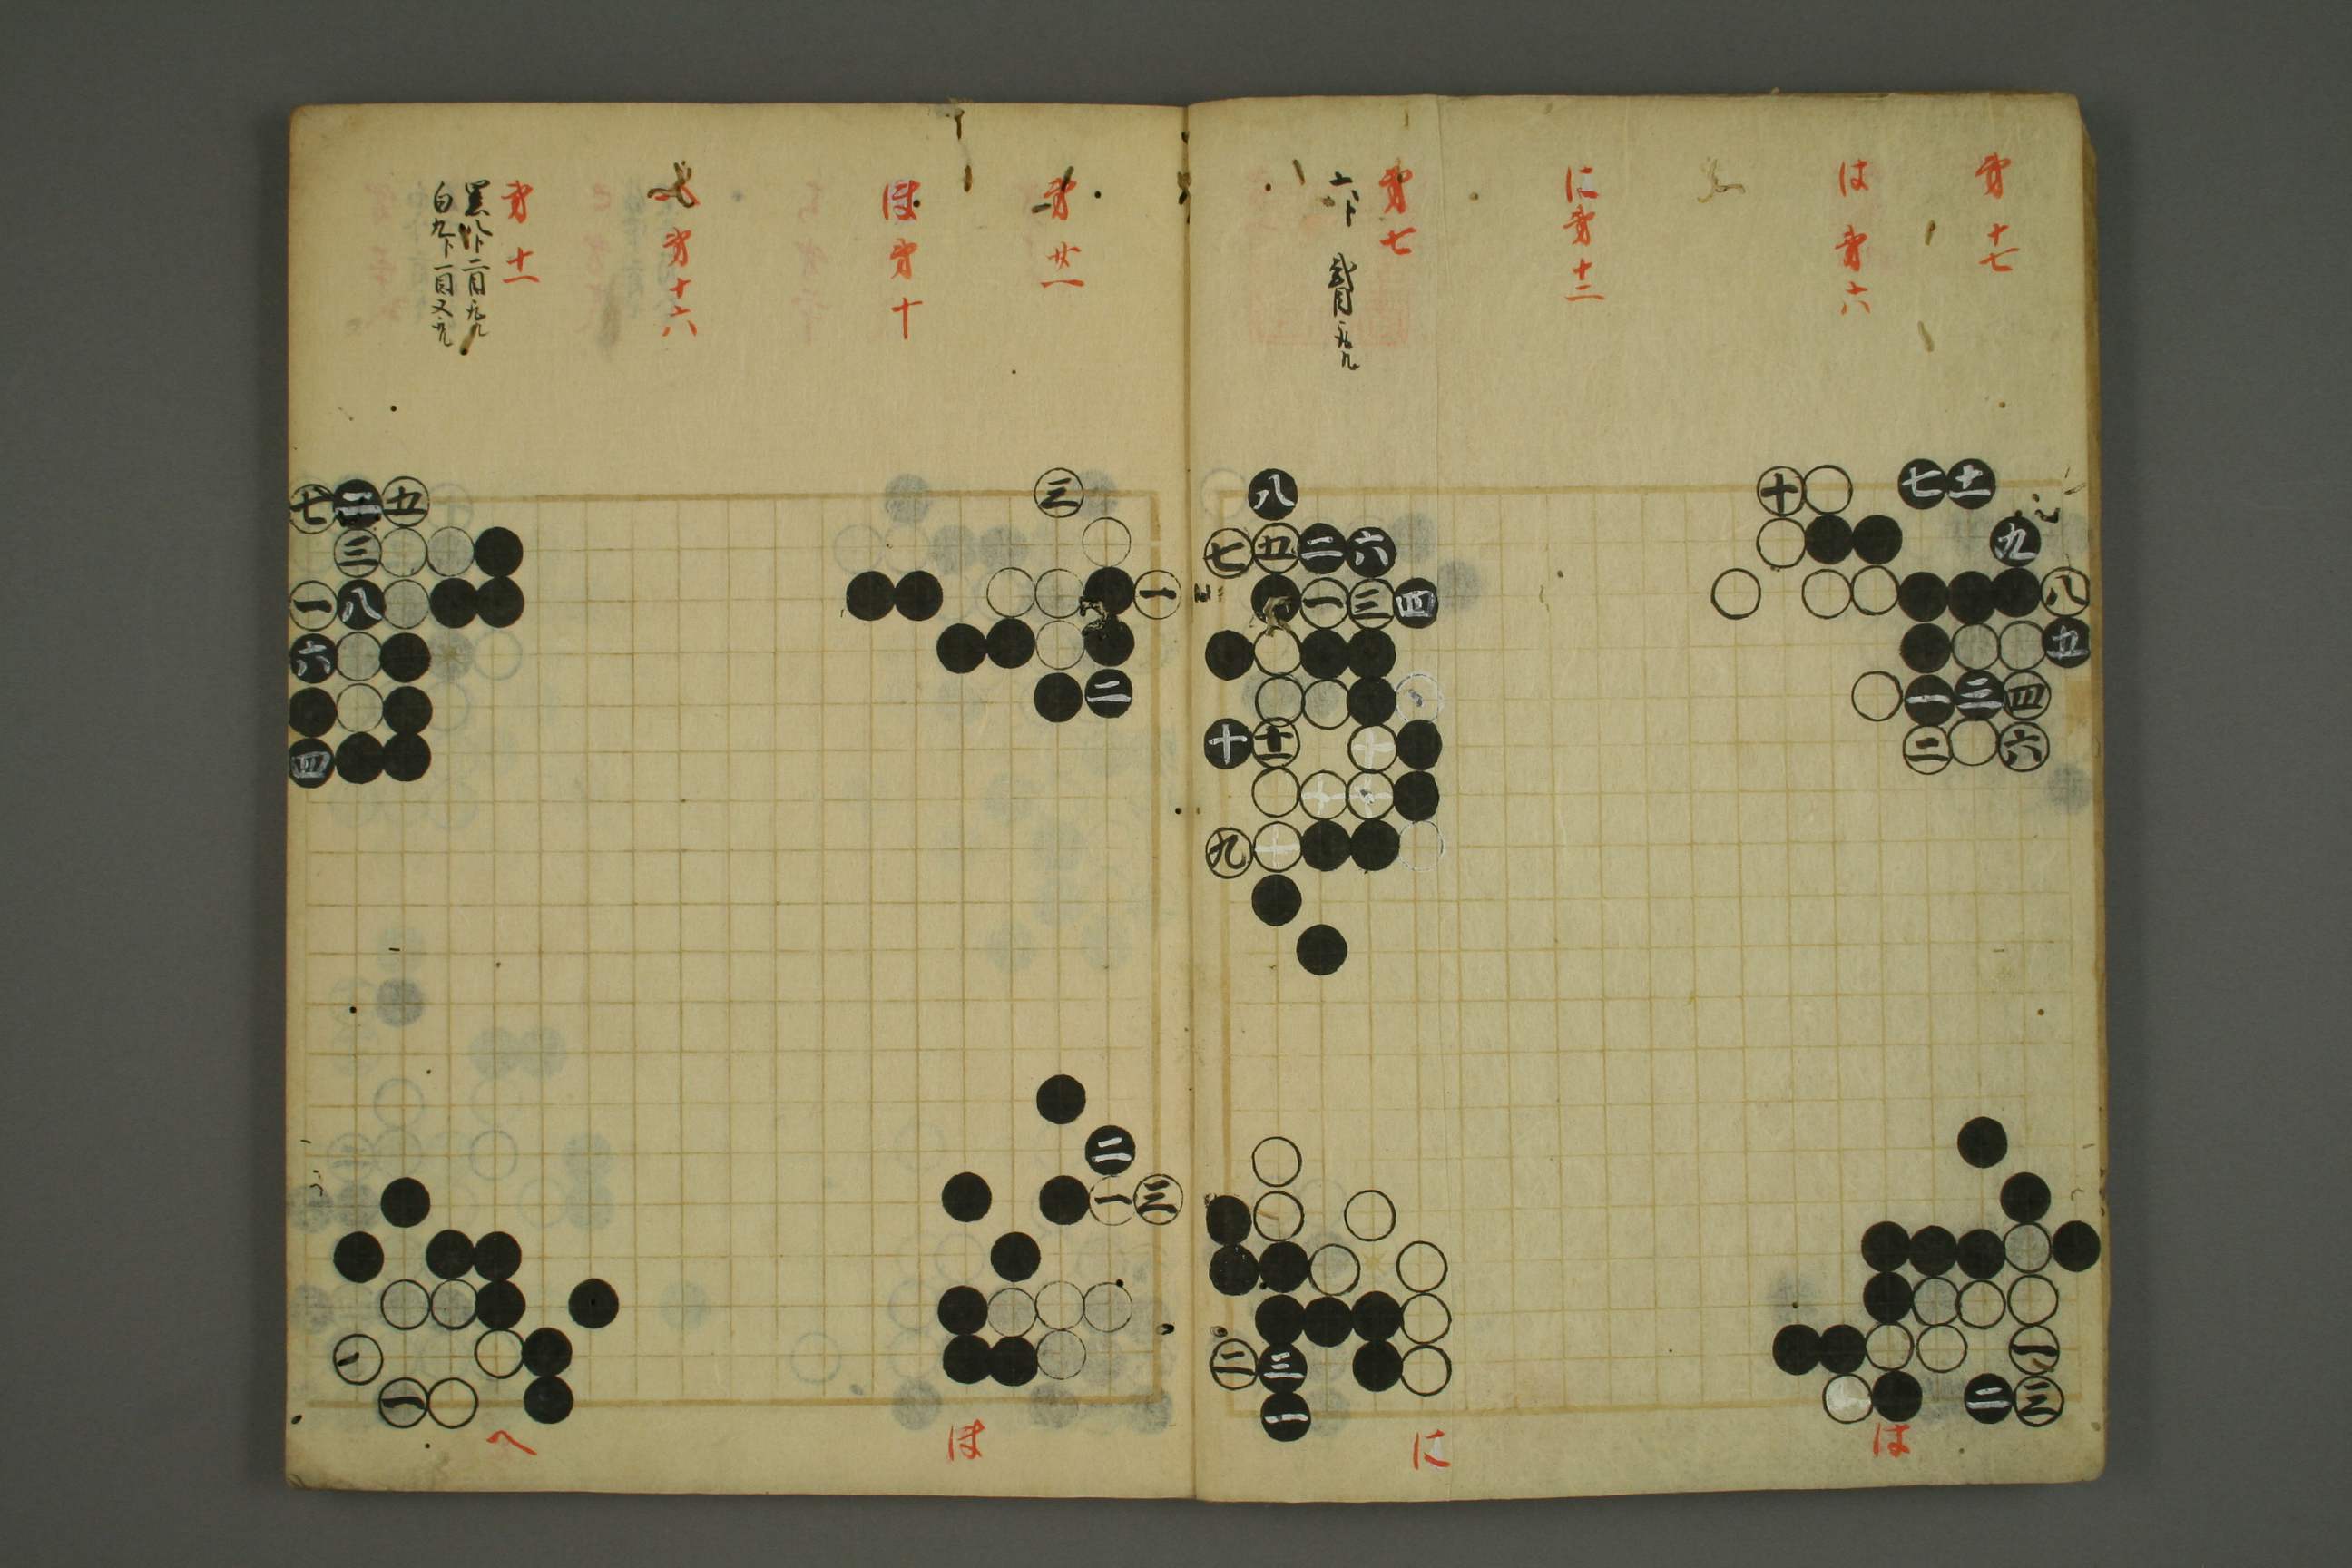 第十七
は第六
に第十二
第七
第廿一
ほ第十
へ第十六
第十一
黒八下二目
白九下一目又
十 七 十一
九
八
五
一 三 四
二 六
八
七 五 二 六
一 三 四
十 十一
九
三
一
二
七 二 五
三
一 八
六
四
一
二 三
一
二
一 三
二 三
一
へ
ほ
に
は